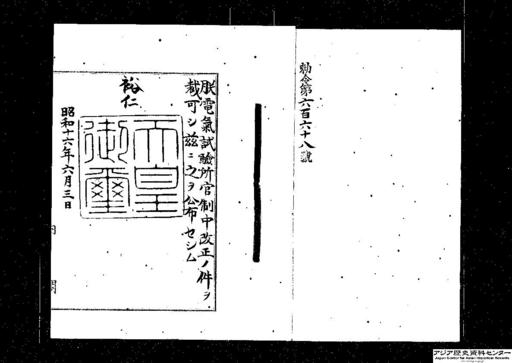 勅令第六百六十八號
朕電氣試驗所官制中改正ノ件ヲ
裁可シ茲ニ之ヲ公布セシム
裕仁
天皇
御璽
昭和十六年六月三日
内閣
アジア歴史資料センター
Japan Center for Asian Historical Records